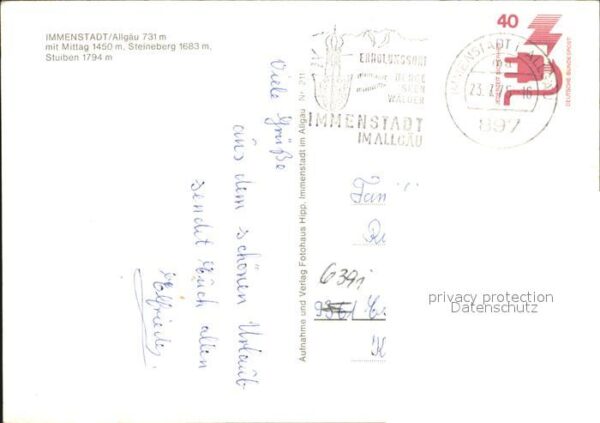 IMMENSTADT/Allgäu 731 m
mit Mittag 1450 m, Steineberg 1683 m,
Stuiben 1794 m
Viele Grüße
aus dem schönen Urlaub
sendet Euch allen
Elfriede
Aufnahme und Verlag Fotohaus Hipp, Immenstadt im Allgäu Nr. 211
ERHOLUNGSORT
BERGE
SEEN
WÄLDER
IMMENSTADT
IM ALLGÄU
IMMENSTADT
23.
16
897
40
DEUTSCHE BUNDESPOST
Fam
privacy protection
Datenschutz